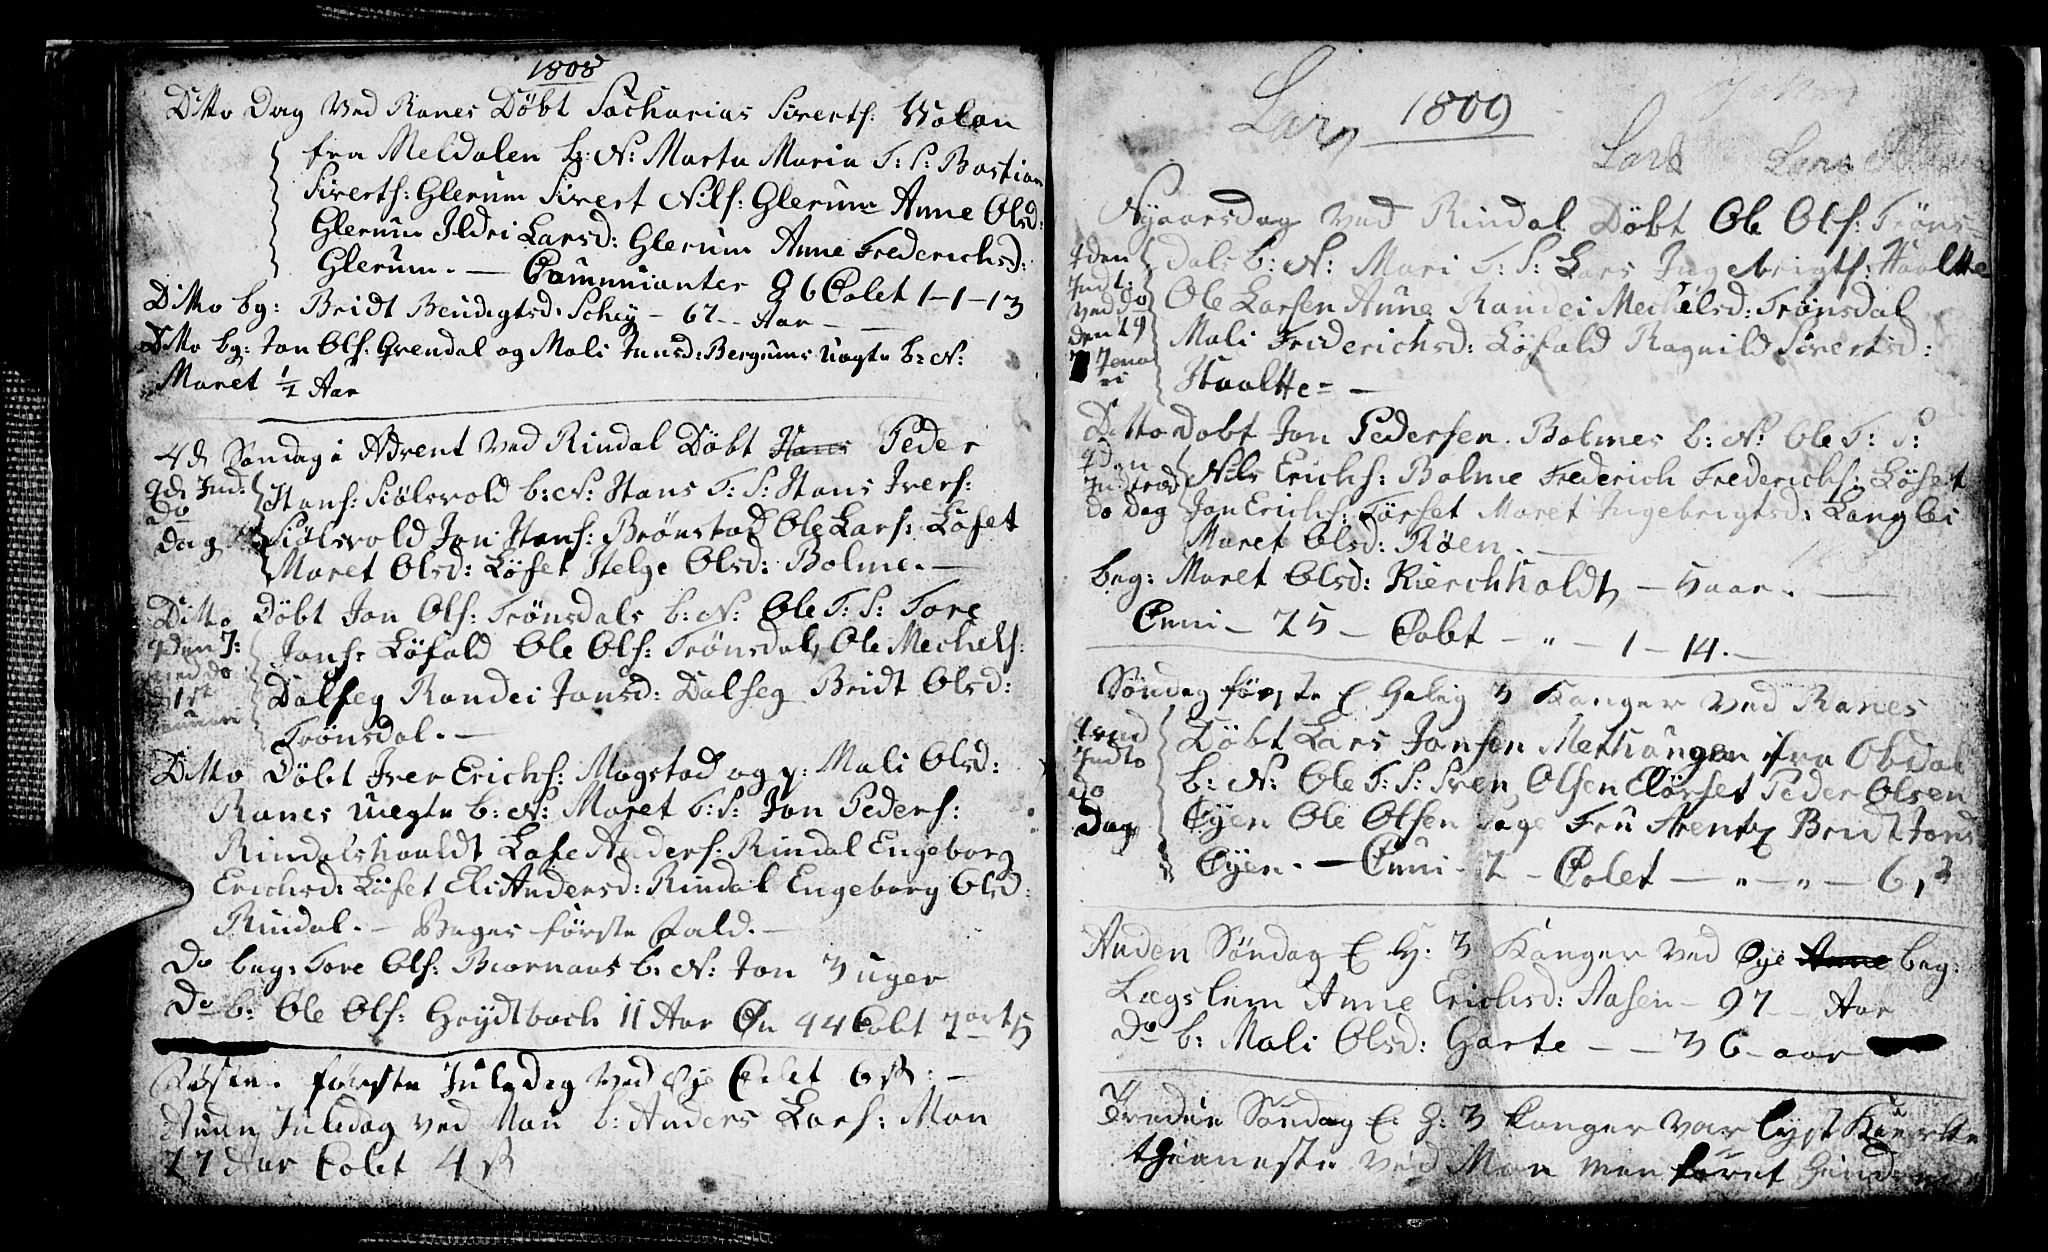 1808
Ditto Dag ved Ranes Døbt Sacharias Siverts: Volan
fra Meldalen b: N: Marta Maria F: S: Bastian
Siverts: Glerum Sivert Nils: Glerum Anne Olsd:
Glerum Ildri Larsd: Glerum Anne Frederichsd:
Glerum. — Communianter 86 Colet 1-1-13
Ditto bg: Bridt Bendigtsd. Schey - 67 - Aar -
Ditto bg: Jon Ols. Grendal og Mali Jonsd: Bergums uegte b: N:
Maret ½ Aar
4d Søndag i Advent ved Rindal Døbt Hans Peder
Hans: Siølsvold b: N: Hans F: S: Hans Ivers:
Siølsvold Jon Hans: Brønstad Ole Lars: Løset
Maret Olsd: Løset Helge Olsd: Bolme. —
qd Ind:
Do
Dag
Ditto Døbt Jon Ols: Trønsdals b: N: Ole F: S: Tore
Jons: Løfald Ole Ols: Trønsdal, Ole Mechels:
Dalseg Randei Jonsd: Dalseg Bridt Olsd:
Trønsdal. —
qden J:
ved do
1st
Ditto Døbt Iver Erichs: Magstad og p: Mali Olsd:
Ranes uegte b: N: Maret F: S: Jon Peders:
Rindalshaaldt Lase Anders: Rindal Engeborg
Erichsd: Løset Eli Andersd: Rindal Engeborg Olsd:
Rindal. — Beges første Fald. —
Do beg: Tore Ols: Biørnaas b: N: Jon 3 uger
Do b: Ole Ols: Grydtbach 11 Aar 44 Colet 2ort 5
første Juledag ved Øje Colet 6 s: —
Anden Juledag ved Mou b: Anders Lars: Mon
27 Aar Colet 4 s
1809
Lars
Lars Lars
Nyaarsdag ved Rindal Døbt Ole Ols: Trøns-
dals b: N: Mari F: S: Lars Ingebrigts: Haaltte
Ole Larsen Anne Randei Mechelsd: Trønsdal
Mali Friderichsd: Løfald Ragnild Sivertsd:
Haaltte - —
qden
Indt:
ved do
den 19
Jenua
ri
Ditto Døbt Jon Pedersen Bolmes b: N: Ole F: S:
Nils Erichs: Bolme Frederich Frederichs: Løset
Jon Erichs: Førset Maret Ingebrigtsd: Langlei
Maret Olsd: Røen. —
qden
Indtrød
do dag
beg: Maret Olsd: Kierchholdt — 5 aar. —
Cuni — 25 — Colet — " — 1 — 14. —
Søndag første E. Helig 3 Konger ved Ranes
Døbt Lars Jonsen Methaugen fra Obdal
b: N: Ole F: S: Sven Olsen Elørset Peder Olsen
Øyen Ole Olsen Fru Arentz Bridt Jons
Øyen. — Cuni - 2 - Colet — " — " — 6, 2
Indto
do
Dag
Anden Søndag E H: 3 Konger ved Øje Anne beg:
Lægslem Anne Erichsd: Aasen — 97 — Aar
Do b: Mali Olsd: Garte — — 36 - aar
Tredie Søndag E. H: 3 Konger var lyst Kierke
thienneste ved Mon men føret hind